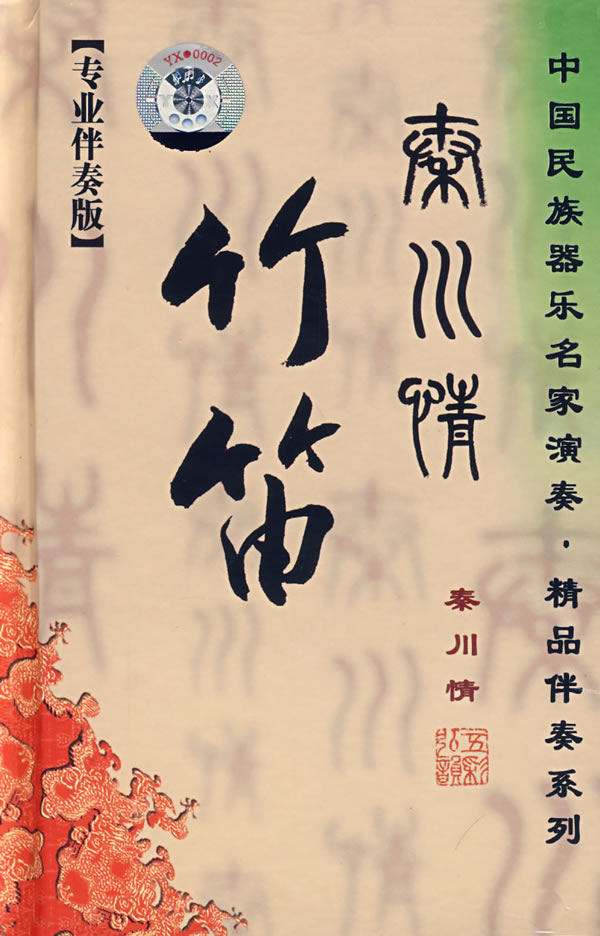 中国民族器乐名家演奏·精品伴奏系列
秦川情
秦川情
五彩
弘韻
竹笛
【专业伴奏版】
YX●0002